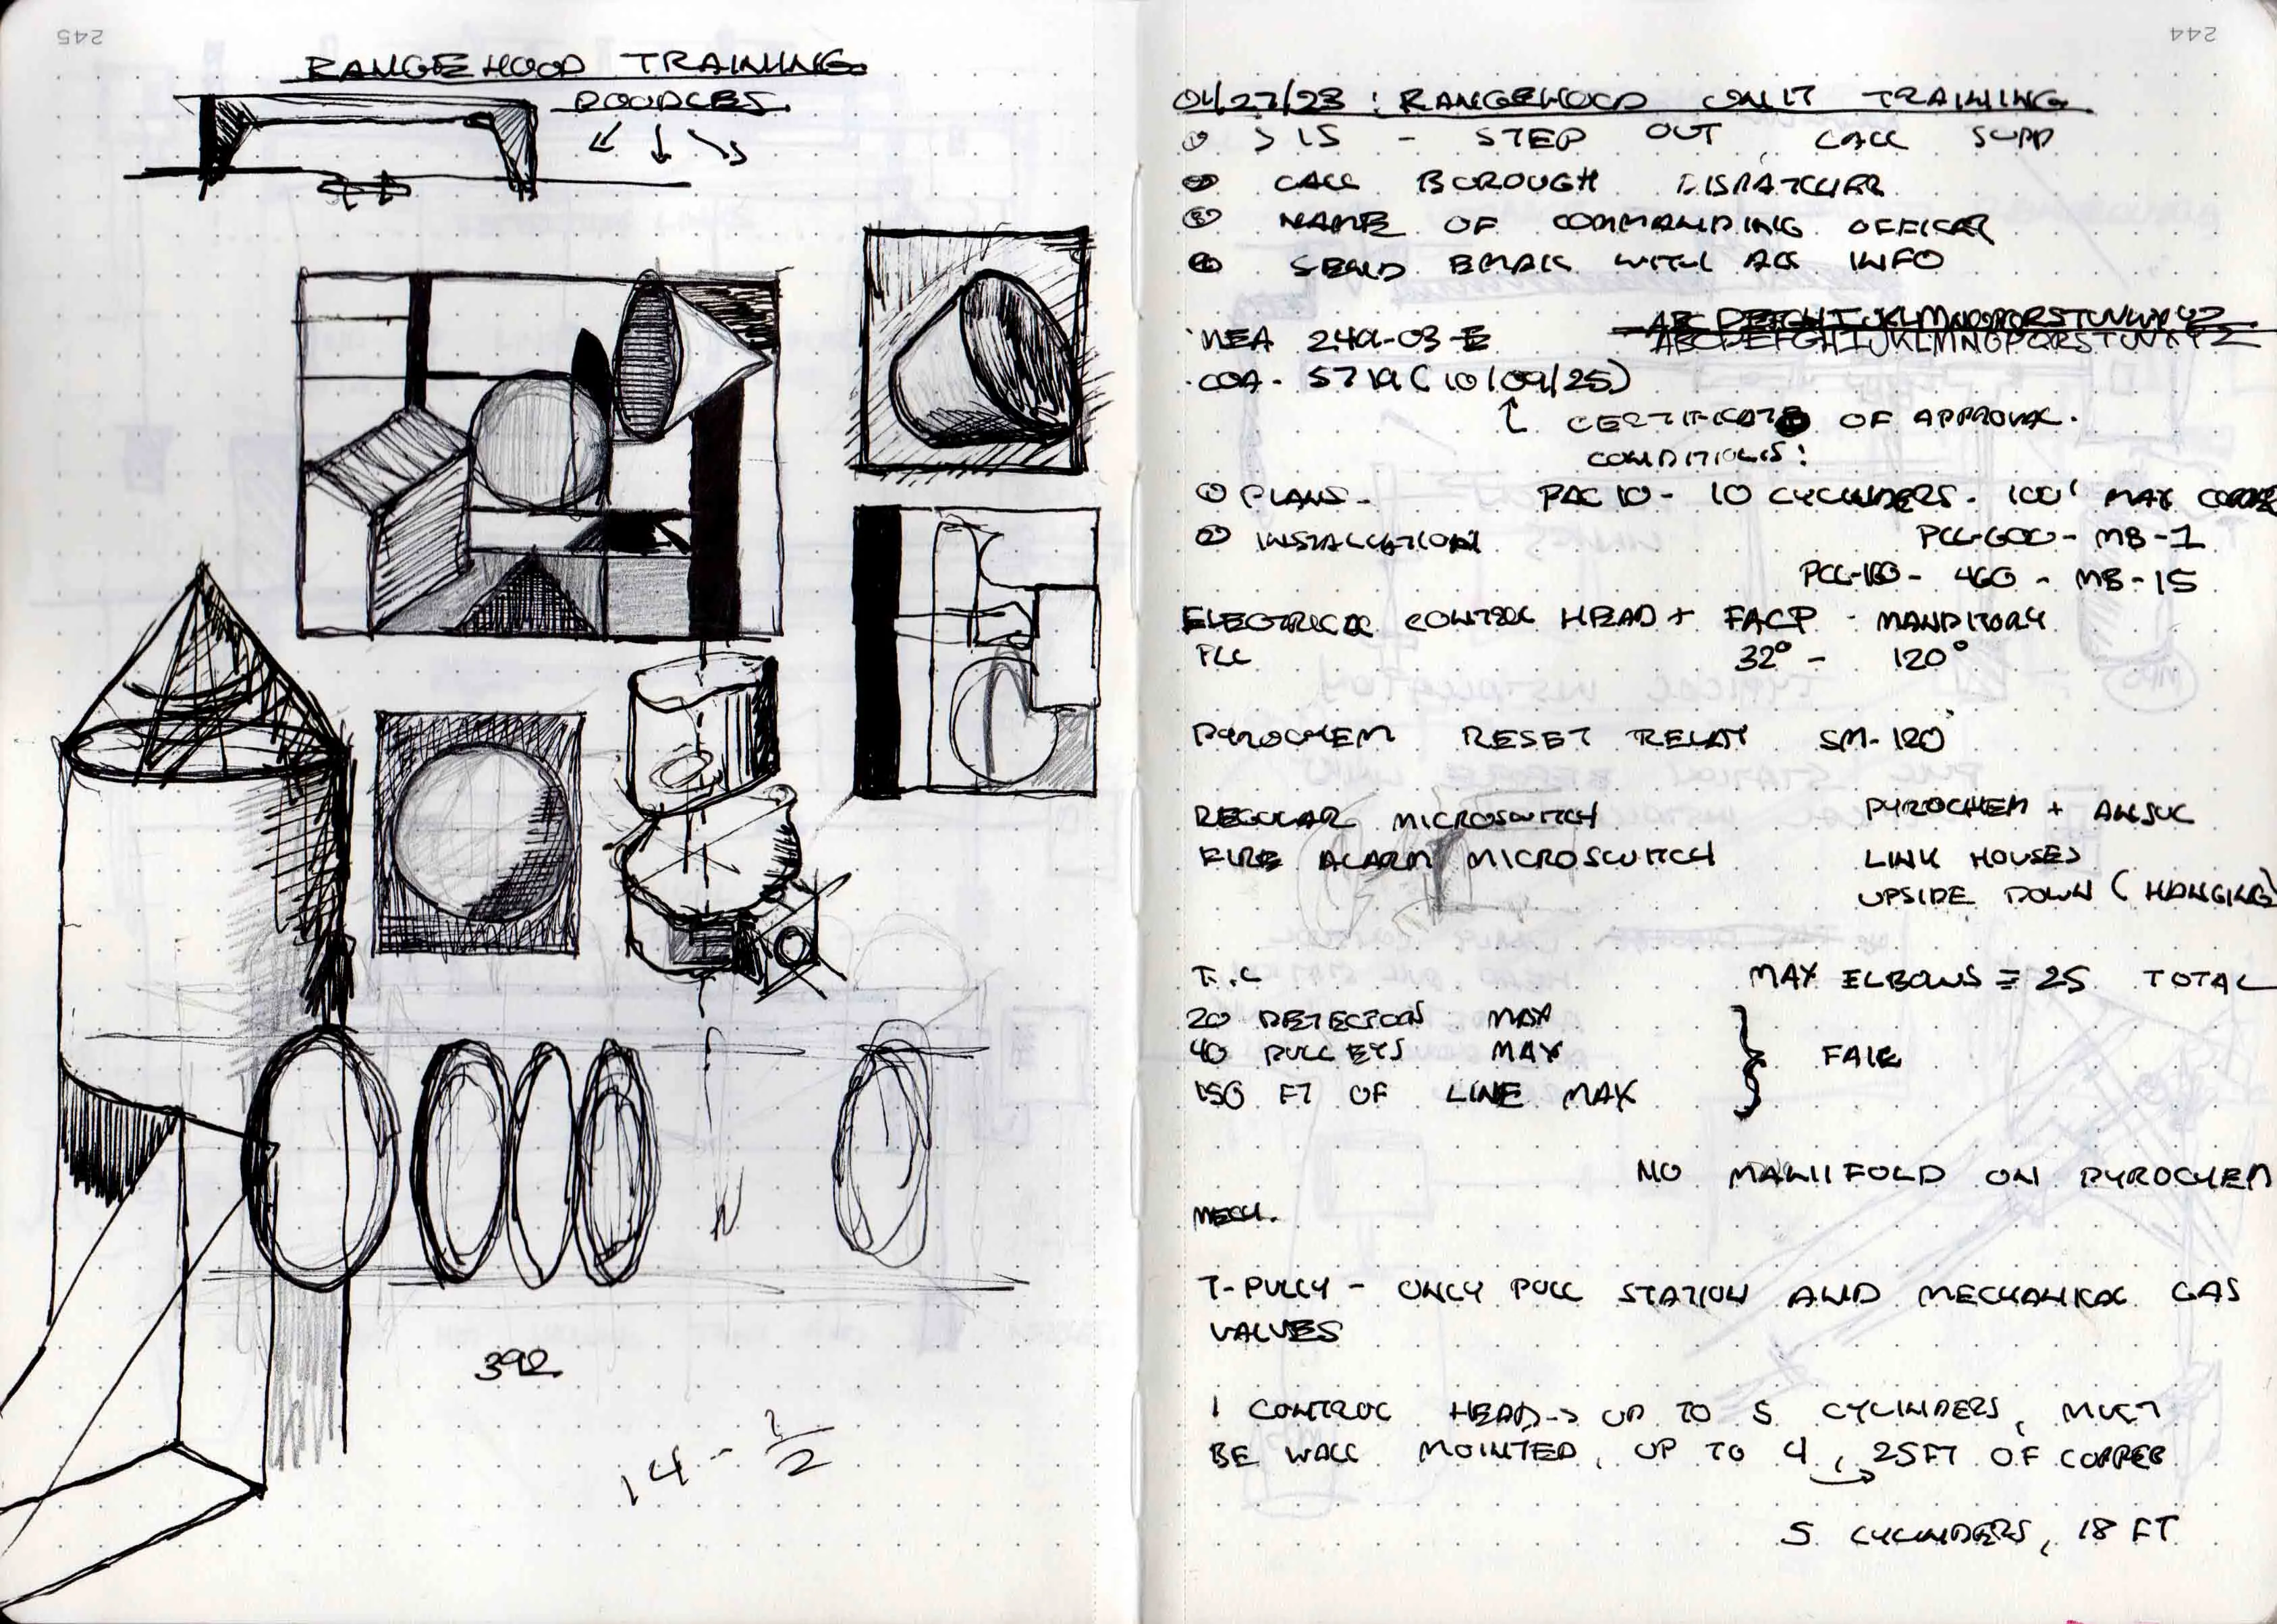 245
RANGEHOOD TRAINING
DOODLES
392
14 - 1/2
244
01/27/23 : RANGEHOOD UNIT TRAINING
① > 15 - STEP OUT, CALL SUPP
② CALL BOROUGH DISPATCHER
③ NAME OF COMMANDING OFFICER
④ SEND EMAIL WITH ALL INFO
ABCDEFGHIJKLMNOPQRSTUVWXYZ
MEA 249-03-E ABCDEFGHIJKLMNOPQRSTUVXYZ
COA - 5719 (10/09/25)
CERTIFICATE OF APPROVAL.
CONDITIONS:
① PLANS - PAC 10 - 10 CYLINDERS - 100' MAX COPPER
② INSTALLATION PCL-600 - MB-1
PCL-160 - 460 - MB-15
ELECTRICAL CONTROL HEAD + FACP - MANDITORY
PLC 32° - 120°
PYROCHEM RESET RELAY SM-120
REGULAR MICROSWITCH PYROCHEM + ANSUL
FIRE ALARM MICROSWITCH LINK HOUSES
UPSIDE DOWN (HANGING)
MAX ELBOWS = 25 TOTAL
20 DETECTORS MAX
40 PULLEYS MAX } FAIL
150 FT OF LINE MAX
NO MANIIFOLD ON PYROCHEM
MECH.
T-PULLY - ONLY PULL STATION AND MECHANICAL GAS
VALVES
1 CONTROL HEAD → UP TO 5 CYLINDERS, MUST
BE WALL MOINTED, UP TO 4, 25FT OF COPPER
5 CYLINDERS, 18 FT